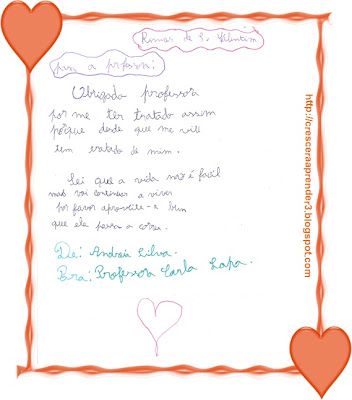 Rimas de S. Valentim
para a professora:
Obrigada professora
por me ter tratado assim
porque desde que me
tem tratado de mim.
Sei que a vida não é fácil
mas vai continuar a viver
por favor aproveite-a bem
que ela passa a correr.
De: Andreia Silva.
Para: Professora Carla Lapa.
http://cresceraaprender3.blogspot.com